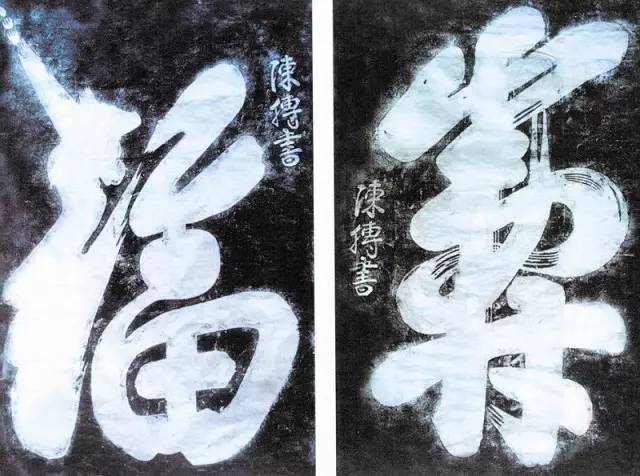 福
陳摶書
壽
陳摶書